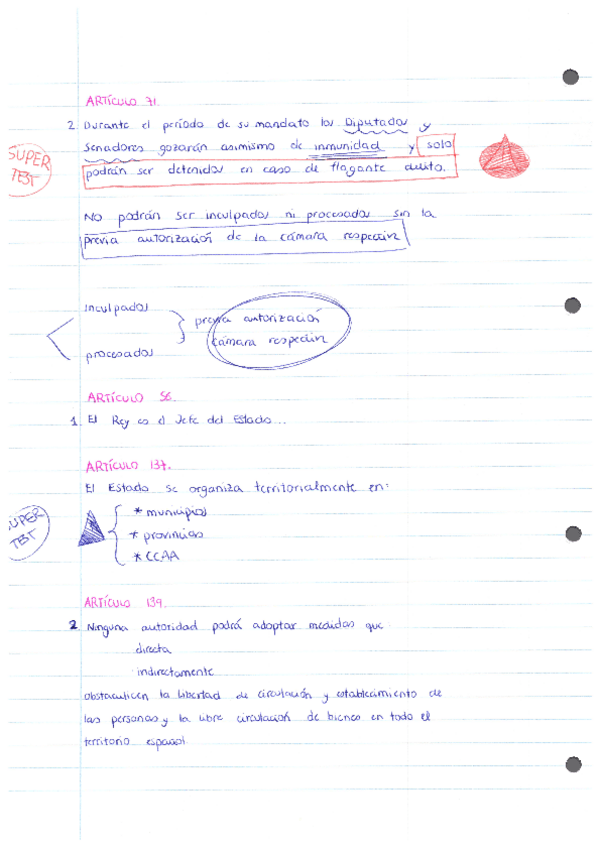 ARTÍCULO 71.
2. Durante el período de su mandato los Diputados y
Senadores gozarán asimismo de inmunidad y solo
SUPER
TEST
podrán ser detenidos en caso de flagante delito.
No podrán ser inculpados ni procesados sin la
previa autorización de la cámara respectiva
inculpados
previa autorización
cámara respectiva
procesados
ARTÍCULO 56.
1. El Rey es el Jefe del Estado...
ARTÍCULO 137.
El Estado se organiza territorialmente en:
SUPER
TEST
* municipios
* provincias
* CCAA
ARTÍCULO 139.
2 Ninguna autoridad podrá adoptar medidas que
directa
indirectamente
obstaculicen la libertad de circulación y establecimiento de
las personas y la libre circulación de bienes en todo el
territorio español